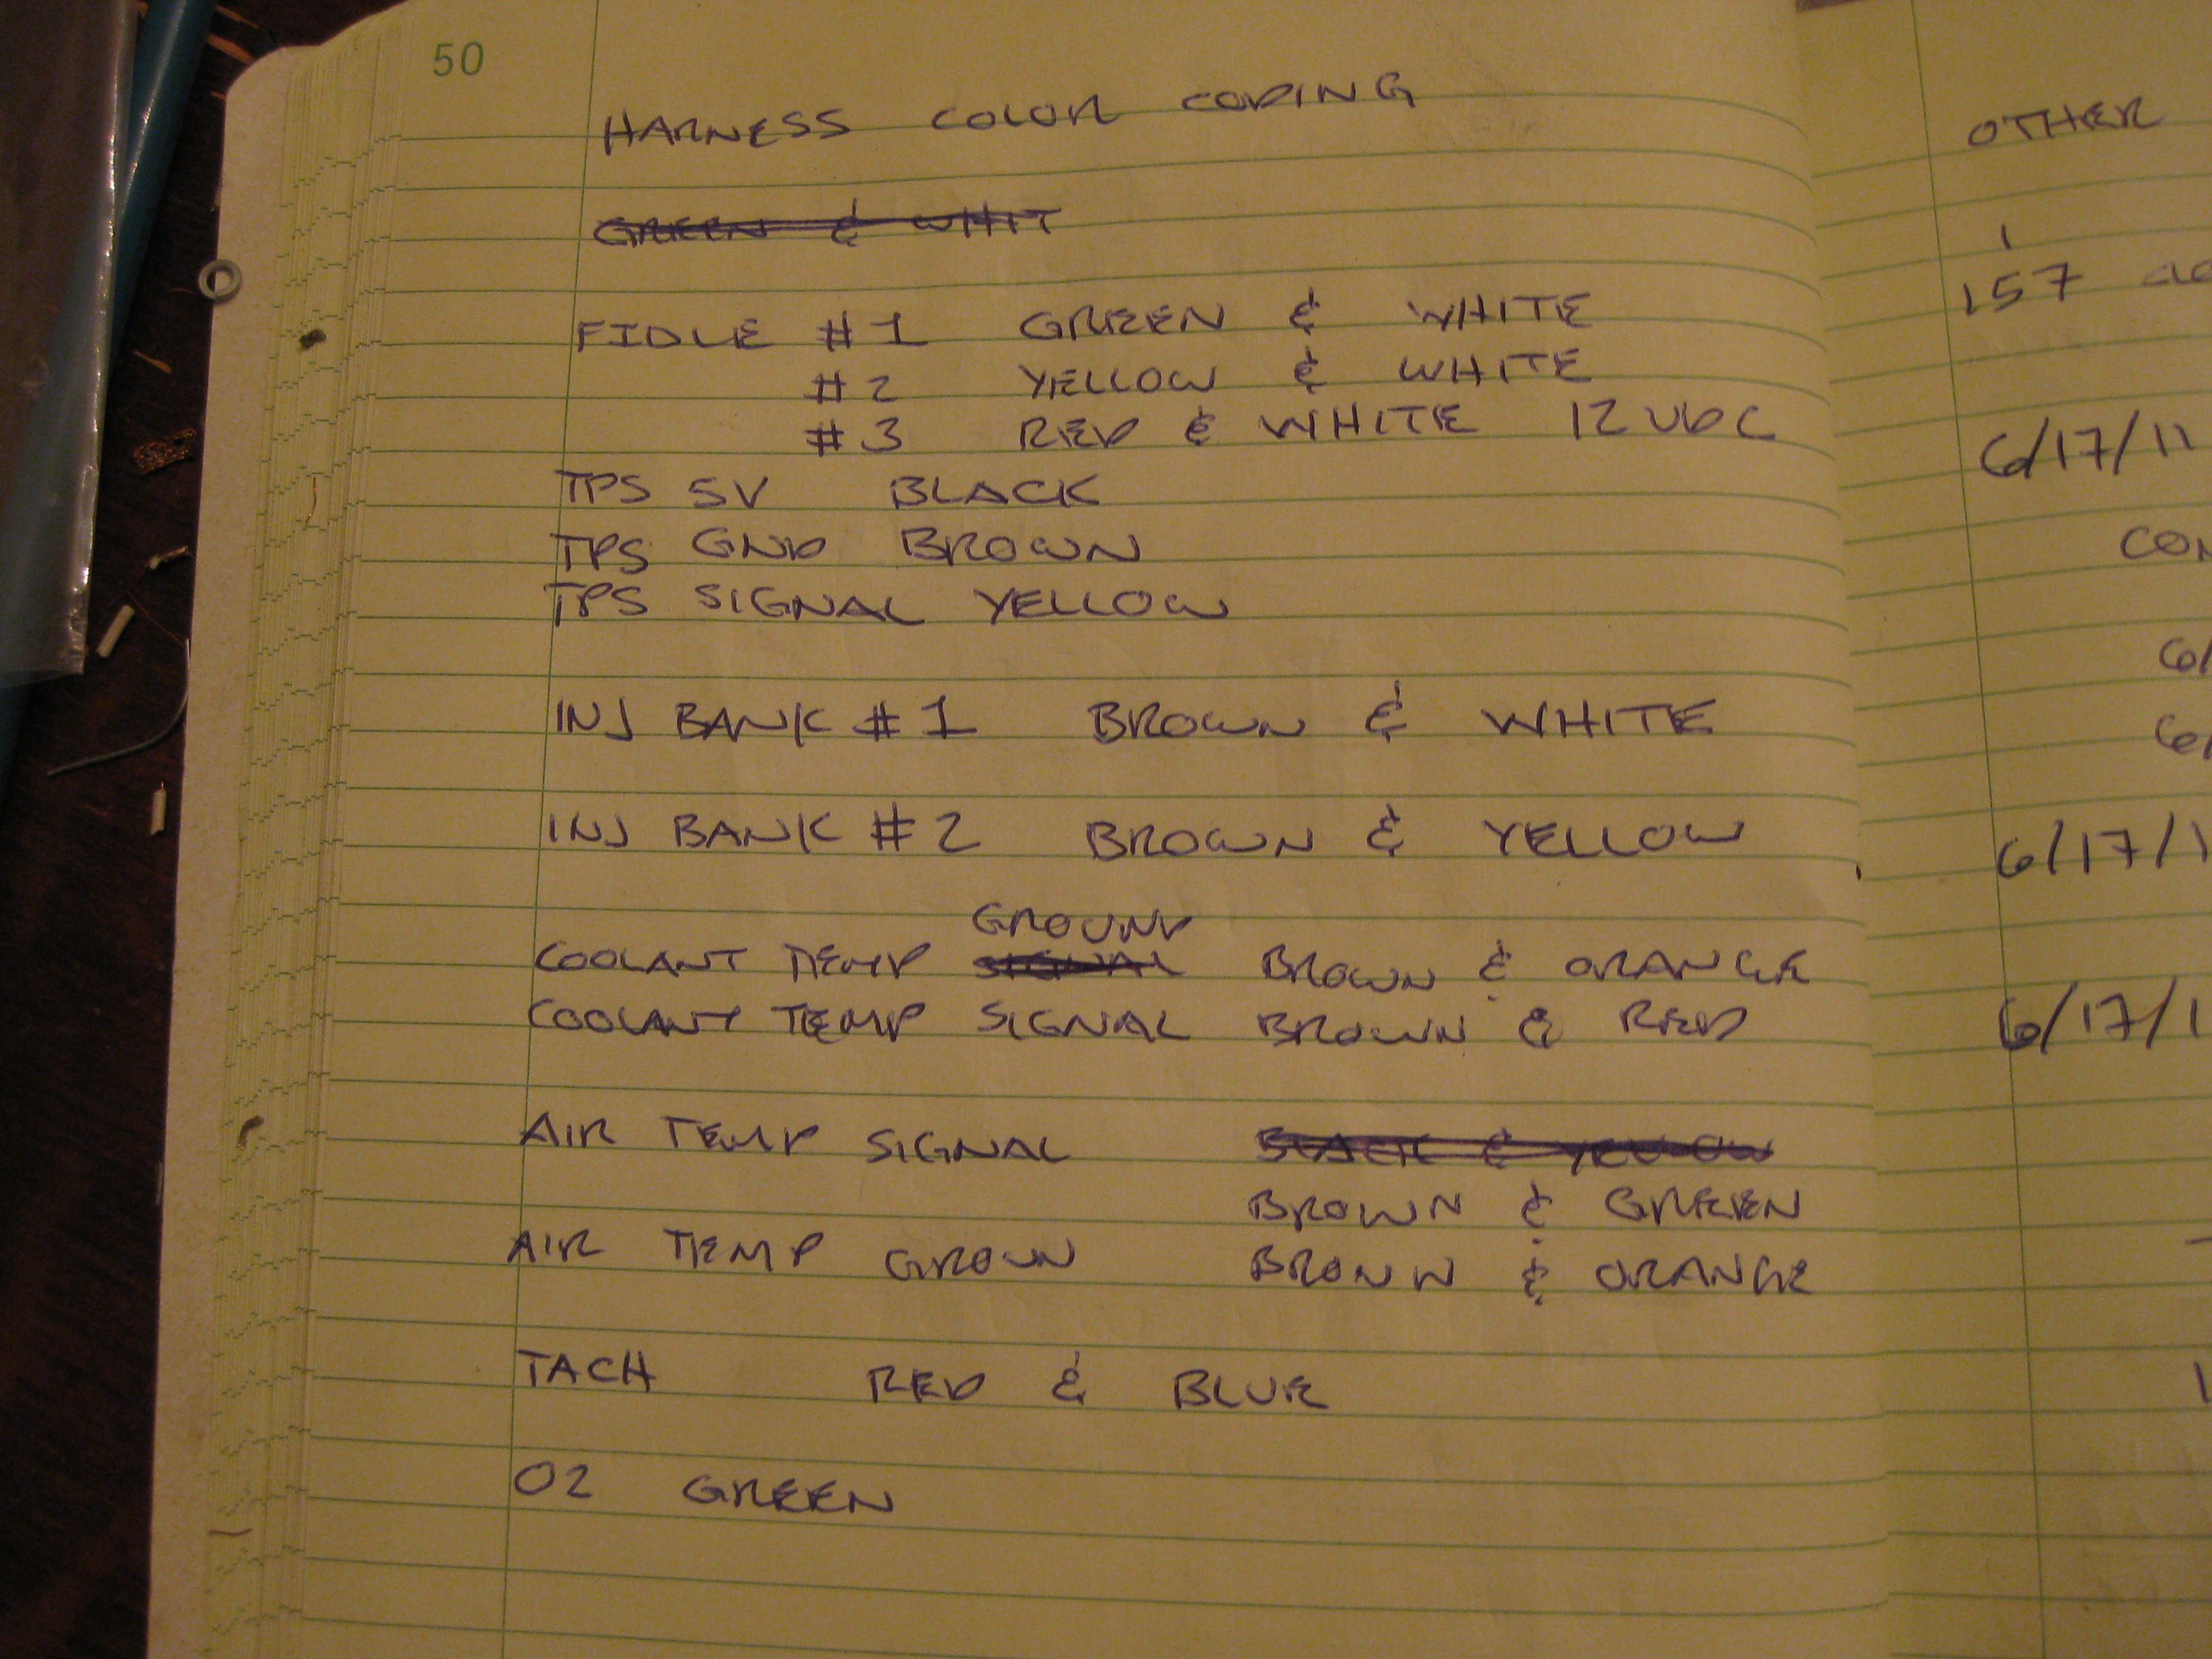 50
HARNESS COLOR CODING
GREEN & WHIT
FIDLE #1 GREEN & WHITE
#2 YELLOW & WHITE
#3 RED & WHITE 12 VDC
TPS 5V BLACK
TPS GND BROWN
TPS SIGNAL YELLOW
INJ BANK #1 BROWN & WHITE
INJ BANK #2 BROWN & YELLOW
GROUND
COOLANT TEMP SIGNAL BROWN & ORANGE
COOLANT TEMP SIGNAL BROWN & RED
AIR TEMP SIGNAL BLACK & YELLOW
BROWN & GREEN
AIR TEMP GROUN BRONW & ORANGE
TACH RED & BLUE
O2 GREEN
OTHER
157
6/17/11
CON
6/
6/
6/17/1
6/17/1